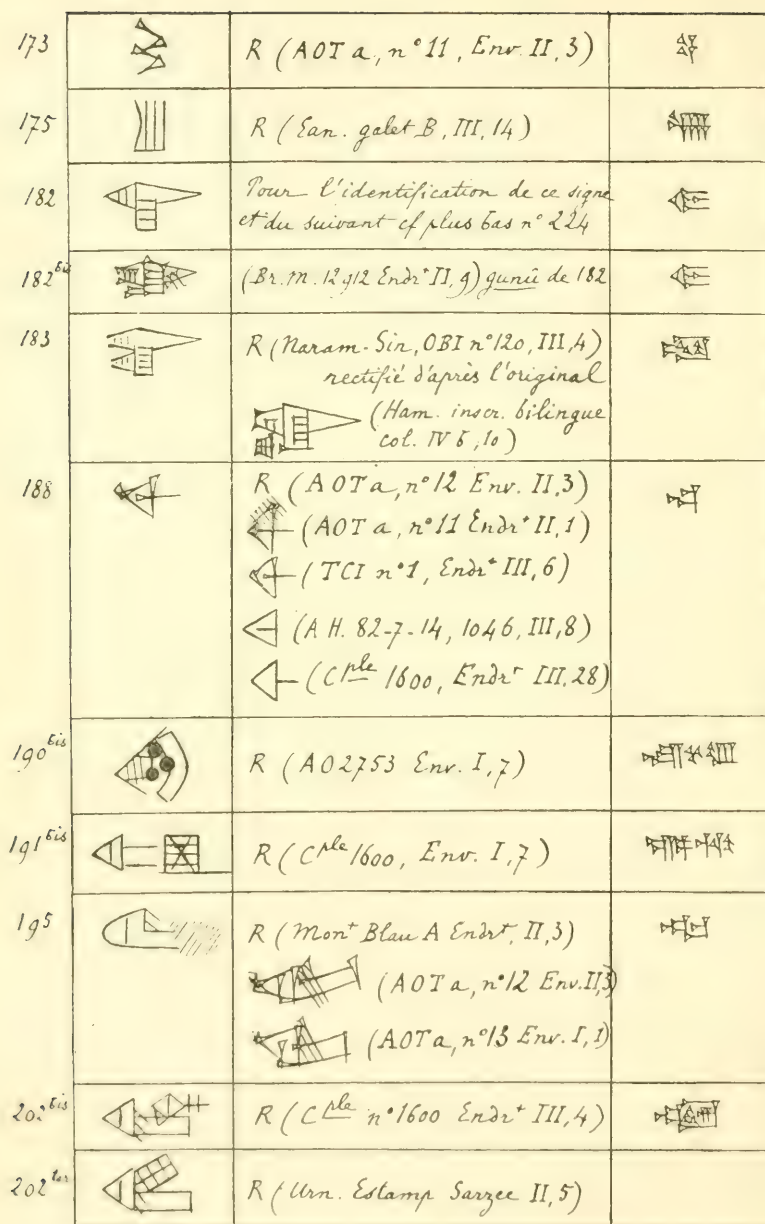 173 R (AOTa, n°11, Env. II, 3)
175 R (Ean. galet B, III, 14)
182 Pour l'identification de ce signe
et du suivant cf plus bas n° 224
182 bis (Br. M. 12912 Endrt II, 9) gunû de 182
183 R (Naram-Sin, OBI n°120, III, 4)
rectifié d'après l'original
(Ham. inscr. bilingue
col. IV b, 10)
188 R (AOTa, n°12 Env. II, 3)
(AOTa, n°11 Endrt II, 1)
(TCI n°1, Endrt III, 6)
(AH. 82-7-14, 1046, III, 8)
(Cple 1600, Endrt III, 28)
190 bis R (AO2753 Env. I, 7)
191 bis R (Cple 1600, Env. I, 7)
195 R (Mont Blau A Endrt, II, 3)
(AOTa, n°12 Env. II, 3)
(AOTa, n°13 Env. I, 1)
202 bis R (Cple n°1600 Endrt III, 4)
202 ter R (Urn. Estamp Sarzec II, 5)